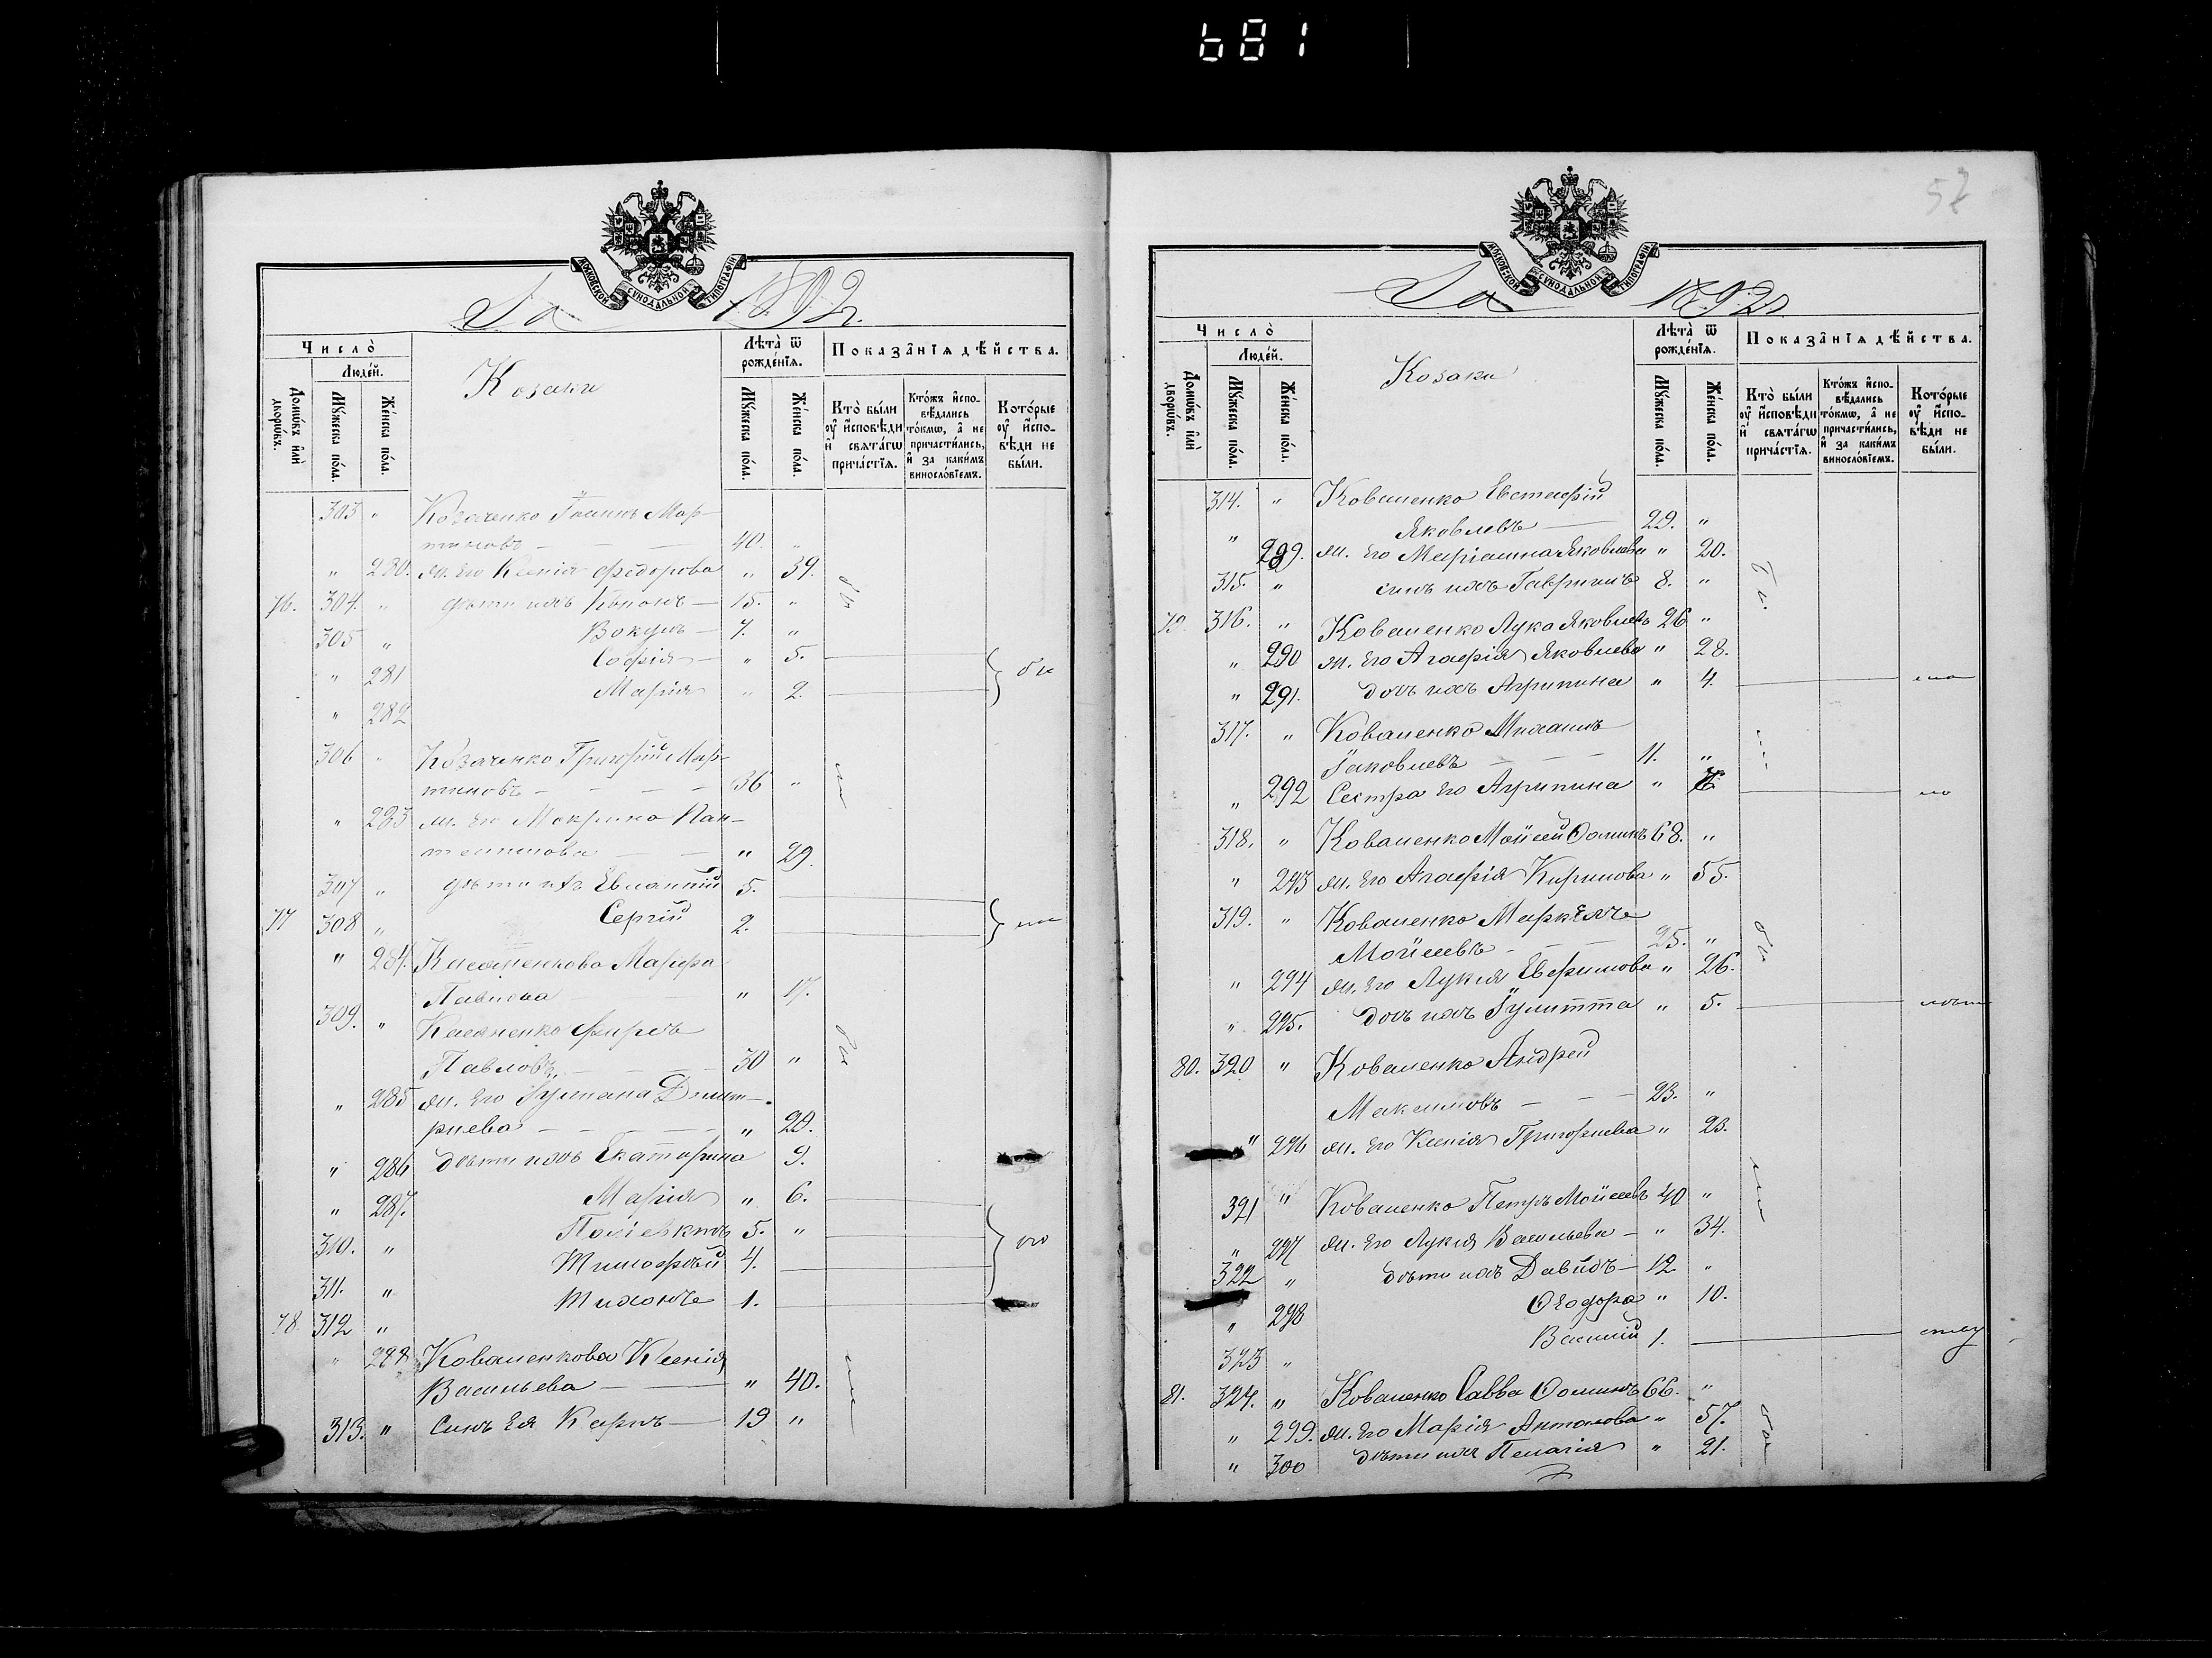 681
МОСКОВСКОЙ СѴНОДАЛЬНОЙ ТИПОГРАФІИ
За 1892 г.
Число̀
Людей.
Домѡвъ или дворѡвъ.
Мꙋжеска пола.
Женска пола.
Козаки
Лѣта ѿ рожденїѧ.
Мꙋжеска пола.
Женска пола.
Показанїѧ дѣйства.
Кто были оу исповѣди и свѧтагѡ причастїѧ.
Ктожъ исповѣдались токмѡ, а не причастились, и за какимъ винословїемъ.
Которые оу исповѣди не были.
303 " Козаченко Іоаннъ Мар-
тиновъ — 40. "
" 280. ж. его Ксенія Федорова " 39.
76. 304. " дѣти ихъ Кононъ — 15. "
305 " Вокулъ — 7. "
" 281 Софія — " 5.
" 282 Марія " 2.
306 " Козаченко Григорій Мар-
тиновъ — 36 "
" 283 ж. его Макрина Пан-
телимонова — " 29.
307 " дѣти ихъ Евлампій 5.
77 308 " Сергій 2.
" 284. Касяненкова Марфа
Павлова " 17.
309. " Касяненко Фирсъ
Павловъ — 30 "
" 285 ж. его Іулиана Димит-
риева — " 29.
" 286 дѣти ихъ Екатерина 9.
" 287. Марія " 6.
310. " Поліевктъ 5. "
311. " Тимофей 4.
78. 312 " Тихонъ 1.
" 288 Коваленкова Ксенія
Васильева — " 40.
313. " Синъ ея Карпъ — 19 "
57
МОСКОВСКОЙ СѴНОДАЛЬНОЙ ТИПОГРАФІИ
За 1892 г.
Число̀
Людей.
Домѡвъ или дворѡвъ.
Мꙋжеска пола.
Женска пола.
Козаки
Лѣта ѿ рожденїѧ.
Мꙋжеска пола.
Женска пола.
Показанїѧ дѣйства.
Кто были оу исповѣди и свѧтагѡ причастїѧ.
Ктожъ исповѣдались токмѡ, а не причастились, и за какимъ винословїемъ.
Которые оу исповѣди не были.
314. " Коваленко Евстафій
Яковлевъ — 29. "
" 289. ж. его Маріанна Яковлева " 20.
315. " синъ ихъ Гавриилъ 8. "
79 316. " Коваленко Лука Яковлевъ 26 "
" 290 ж. его Агафія Яковлева " 28.
" 291. дочь ихъ Агрипина " 4.
317. " Коваленко Михаилъ
Іаковлевъ — 11. "
" 292 Сестра его Агрипина "
318. " Коваленко Мойсей Фоминъ 68. "
" 293 ж. его Агафія Кирилова " 55.
319. " Коваленко Маркелъ
Мойсеевъ — 25. "
" 294 ж. его Лукия Ефимова " 26.
" 295. дочь ихъ Іулитта " 5.
80. 320 " Коваленко Андрей
Максимовъ — 23. "
" 296 ж. его Ксенія Григориева " 23.
321 " Коваленко Петръ Мойсеевъ 40 "
" 297 ж. его Лукия Васильева — " 34.
322 " дѣти ихъ Давидъ — 12 "
" 298 Феодора " 10.
323 " Василій 1.
81. 324. " Коваленко Савва Фоминъ 66. "
" 299. ж. его Марія Антонова " 57.
" 300 дѣти ихъ Пелагія " 21.